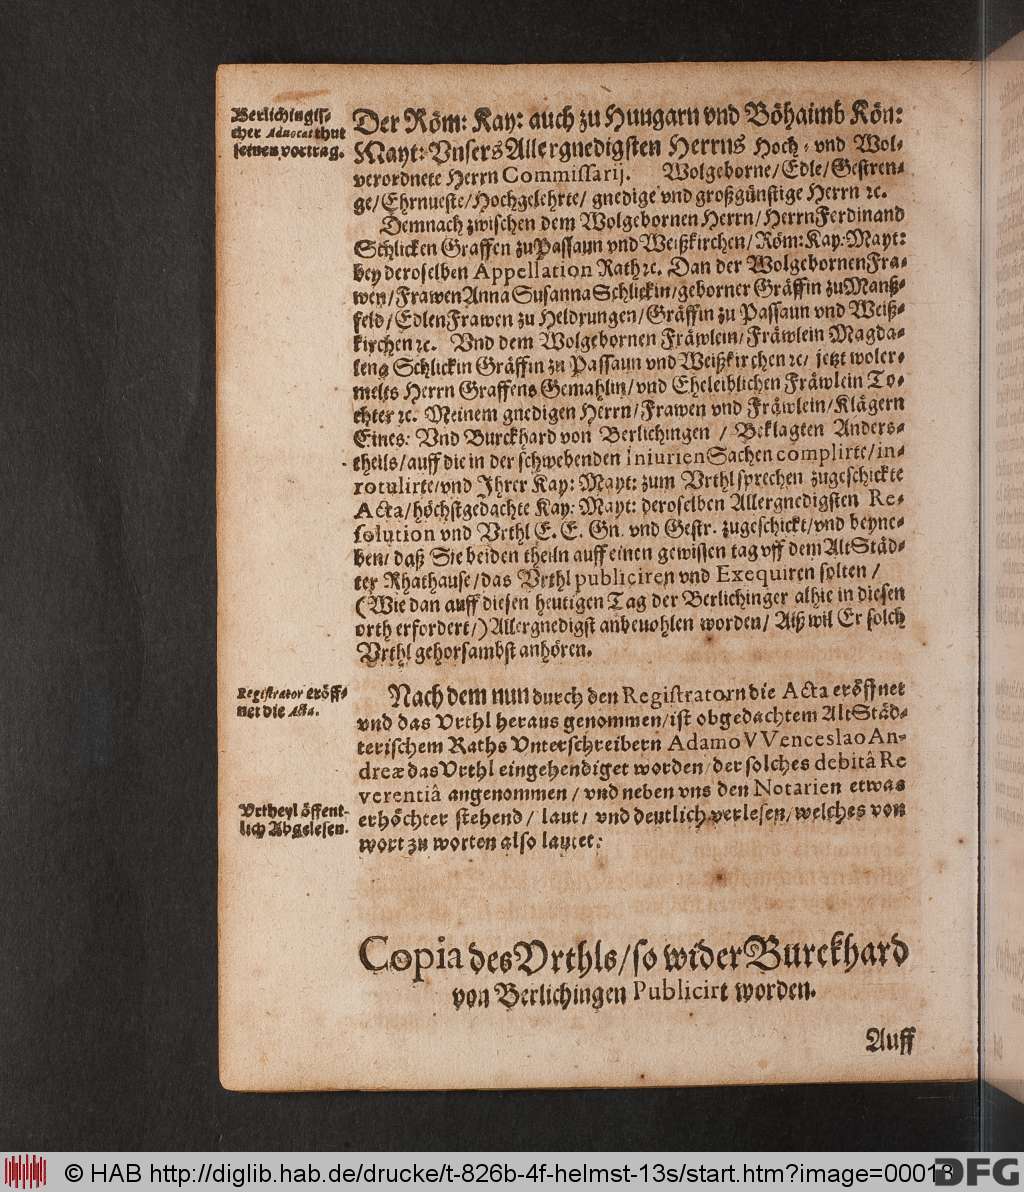 Berlichingis-
cher Advocat thut
seinen vortrag.
Der Röm: Kay: auch zu Hungarn vnd Böhaimb Kön:
Mayt: Vnsers Allergnedigsten Herrns Hoch- vnd Wol-
verordnete Herrn Commissarij. Wolgeborne/ Edle/ Gestren-
ge/ Ehrnueste/ Hochgelehrte/ gnedige vnd großgünstige Herrn ꝛc.
Demnach zwischen dem Wolgebornen Herrn/ Herrn Ferdinand
Schlicken Graffen zu Passaun vnd Weißkirchen/ Röm: Kay: Mayt:
bey deroselben Appellation Rath ꝛc. Dan der Wolgebornen Fra-
wen/ Frawen Anna Susanna Schlickin/ geborner Gräffin zu Manß-
feld/ Edlen Frawen zu Heldrungen/ Gräffin zu Passaun vnd Weiß-
kirchen ꝛc. Vnd dem Wolgebornen Fräwlein/ Fräwlein Magda-
lena Schlickin Gräffin zu Passaun vnd Weißkirchen ꝛc/ jetzt woler-
melts Herrn Graffens Gemahlin/ vnd Eheleiblichen Fräwlein To-
chter ꝛc. Meinem gnedigen Herrn/ Frawen vnd Fräwlein/ Klägern
Eines: Vnd Burckhard von Berlichingen / Beklagten Anders-
theils/ auff die in der schwebenden iniurien Sachen complirte/ in-
rotulirte/ vnd Ihrer Kay: Mayt: zum Vrthl sprechen zugeschickte
Acta/ höchstgedachte Kay: Mayt: deroselben Allergnedigsten Re-
solution vnd Vrthl E. E. Gn. vnd Gestr. zugeschickt/ vnd beyne-
ben/ daß Sie beiden theiln auff einen gewissen tag vff dem Alt Städ-
ter Rhathause/ das Vrthl publiciren vnd Exequiren solten /
(Wie dan auff diesen heutigen Tag der Berlichinger alhie in diesen
orth erfordert/) Allergnedigst anbeuohlen worden/ Aiß wil Er solch
Vrthl gehorsambst anhören.
Registrator eröff-
net die Acta.
Nach dem nun durch den Registratorn die Acta eröffnet
vnd das Vrthl heraus genommen/ ist obgedachtem Alt Städ-
terischem Raths Vnterschreibern Adamo VVenceslao An-
dreæ das Vrthl eingehendiget worden/ der solches debitâ Re
verentiâ angenommen / vnd neben vns den Notarien etwas
Vrtheyl öffent-
lich Abgelesen.
erhöchter stehend/ laut/ vnd deutlich verlesen/ welches von
wort zu worten also lautet:
Copia des Vrthls/ so wider Burckhard
von Berlichingen Publicirt worden.
Auff
© HAB http://diglib.hab.de/drucke/t-826b-4f-helmst-13s/start.htm?image=00018
DFG